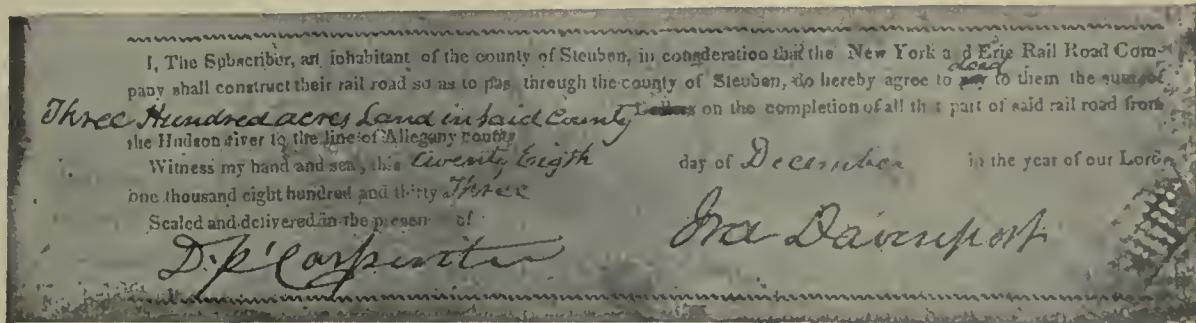 I, The Subscriber, an inhabitant of the county of Steuben, in consderation that the New York a d Erie Rail Road Com-
deed
pany shall construct their rail road so as to pas through the county of Steuben, do hereby agree to pay to them the sum of
Three Hundred acres Land in said County Dollars on the completion of all that part of said rail road from
the Hudson river to the line of Allegany county
Witness my hand and seal, this twenty Eigth day of December in the year of our Lord
one thousand eight hundred and thirty Three
Sealed and delivered in the presen of
D. P. Carpenter
Ira Davenport